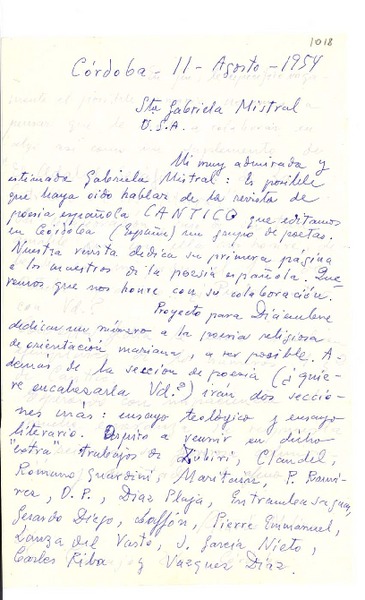 1018
Córdoba - 11 - Agosto - 1954
Sta Gabriela Mistral
U.S.A.
Mi muy admirada y
estimada Gabriela Mistral: Es posible
que haya oido hablar de la revista de
poesia española CANTICO que editamos
en Córdoba (España) un grupo de poetas.
Nuestra revista dedica su primera pagina
a los maestros de la poesia española. Que
remos que nos honre con su colaboración.
Proyecto para Diciembre
dedicar un número a la poesia religiosa
de orientación mariana, a ser posible. A-
demás de la sección de poesia (¿quie
re encabezarla Vd.?) irán dos seccio
nes más: ensayo teológico y ensayo
literario. Aspiro a reunir en dicho
extra trabajos de Zubiri, Claudel,
Romano Guardini, Maritain, P. Ramí-
rez, O.P., Diaz Plaja, Entrambasaguas,
Gerardo Diego, Laffón, Pierre Emmanuel,
Lanza del Vasto, J. García Nieto,
Carles Riba y Vazquez Diaz.